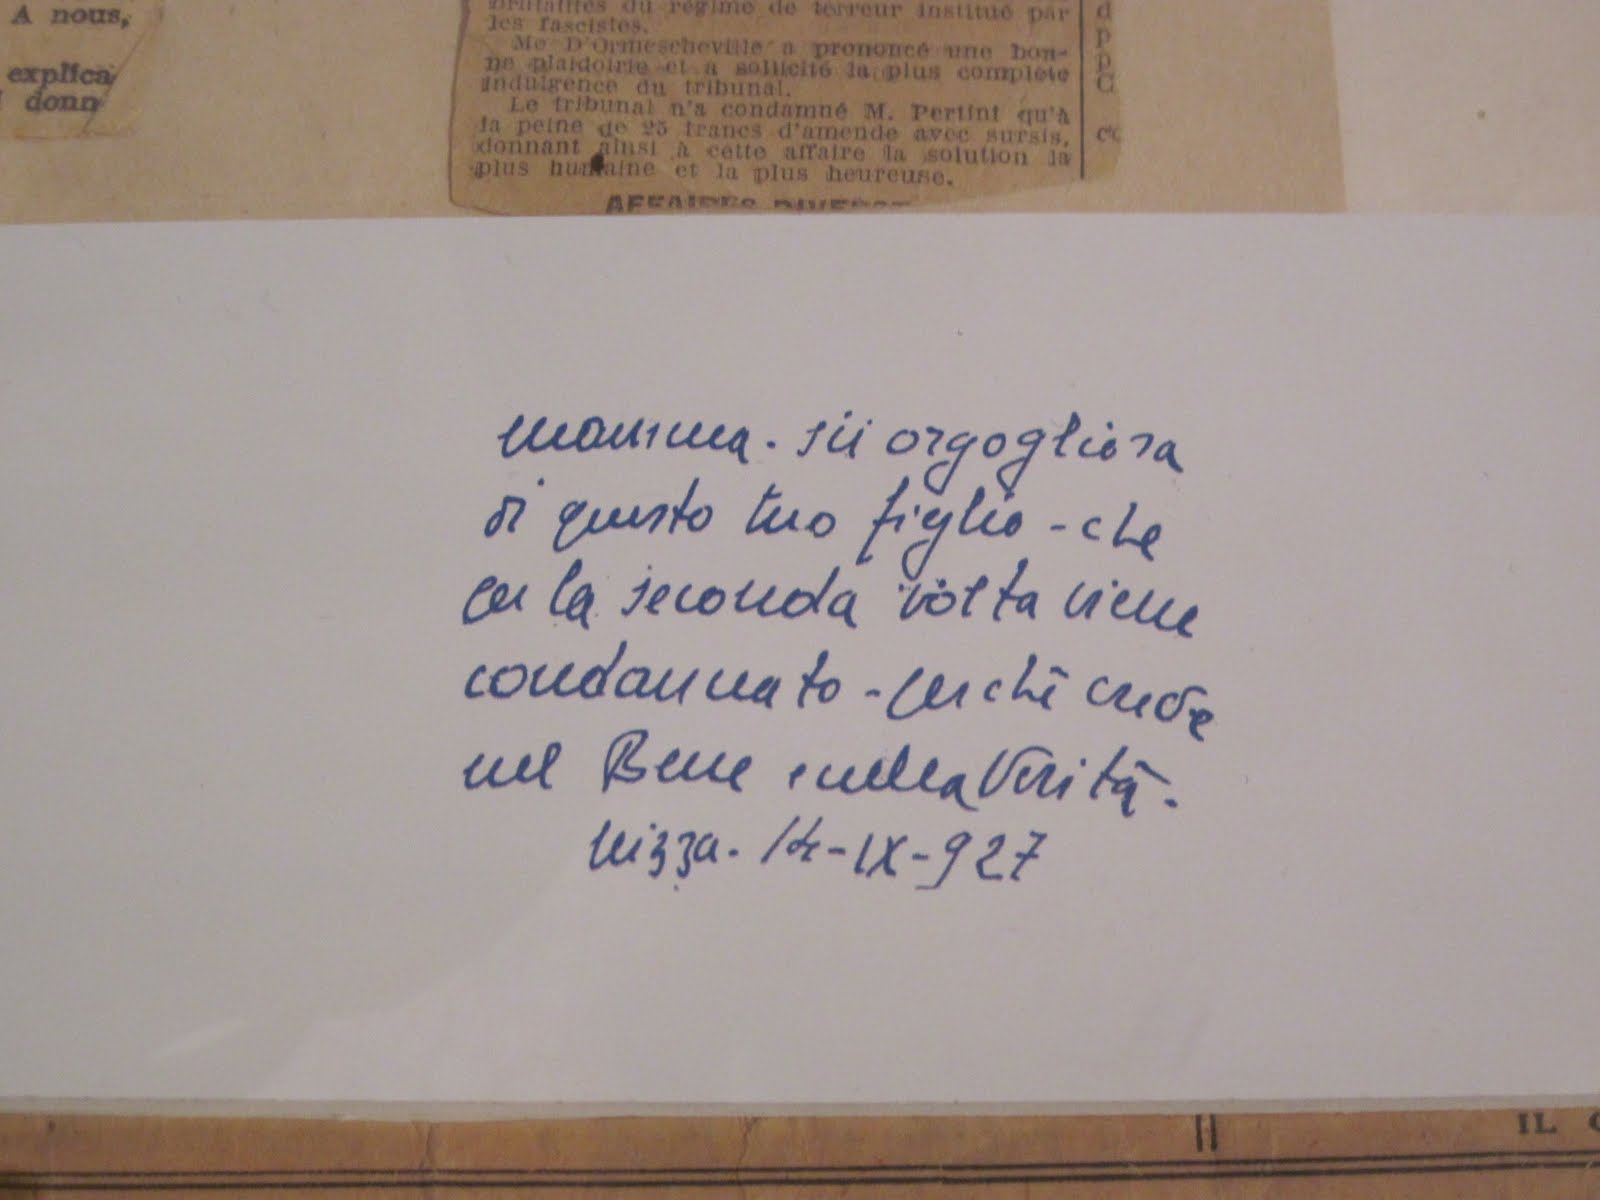 A nous,
explica
donn
brutalités du régime de terreur institué par
les fascistes.
Me D'Ormescheville a prononcé une bon-
ne plaidoirie et a sollicité la plus complète
indulgence du tribunal.
Le tribunal n'a condamné M. Pertini qu'à
la peine de 25 francs d'amende avec sursis,
donnant ainsi à cette affaire la solution la
plus humaine et la plus heureuse.
AFFAIRES DIVERSES
d
p
p
C
cc
mamma - sii orgogliosa
di questo tuo figlio - che
per la seconda volta viene
condannato - perchè crede
nel Bene e nella Verità -
Nizza - 14-IX-927
IL